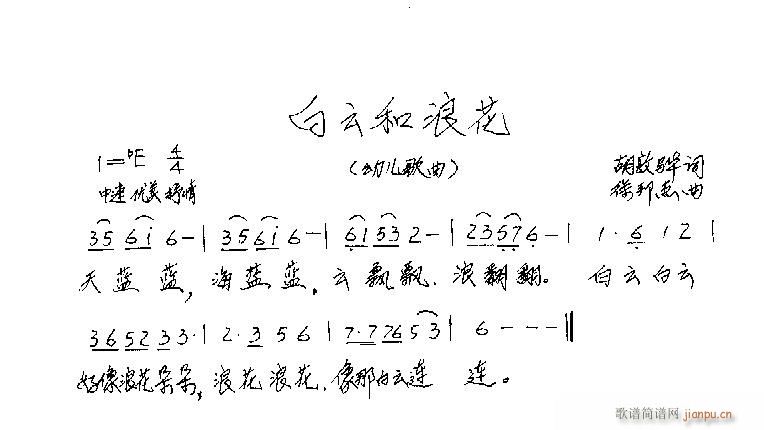 白云和浪花
1=♭E 4/4 (幼儿歌曲) 胡敦骅词
中速 优美 抒情 徐邦杰曲
35 6i 6-| 35 6i 6-| 61 53 2-| 23 57 6-| 1·6 12|
天蓝蓝,海蓝蓝。云飘飘、浪翻翻。白云白云
3652 33·| 2·3 56| 7·7 76 53| 6---‖
好像浪花朵朵,浪花浪花、像那白云连连。
歌谱简谱网 jianpu.cn